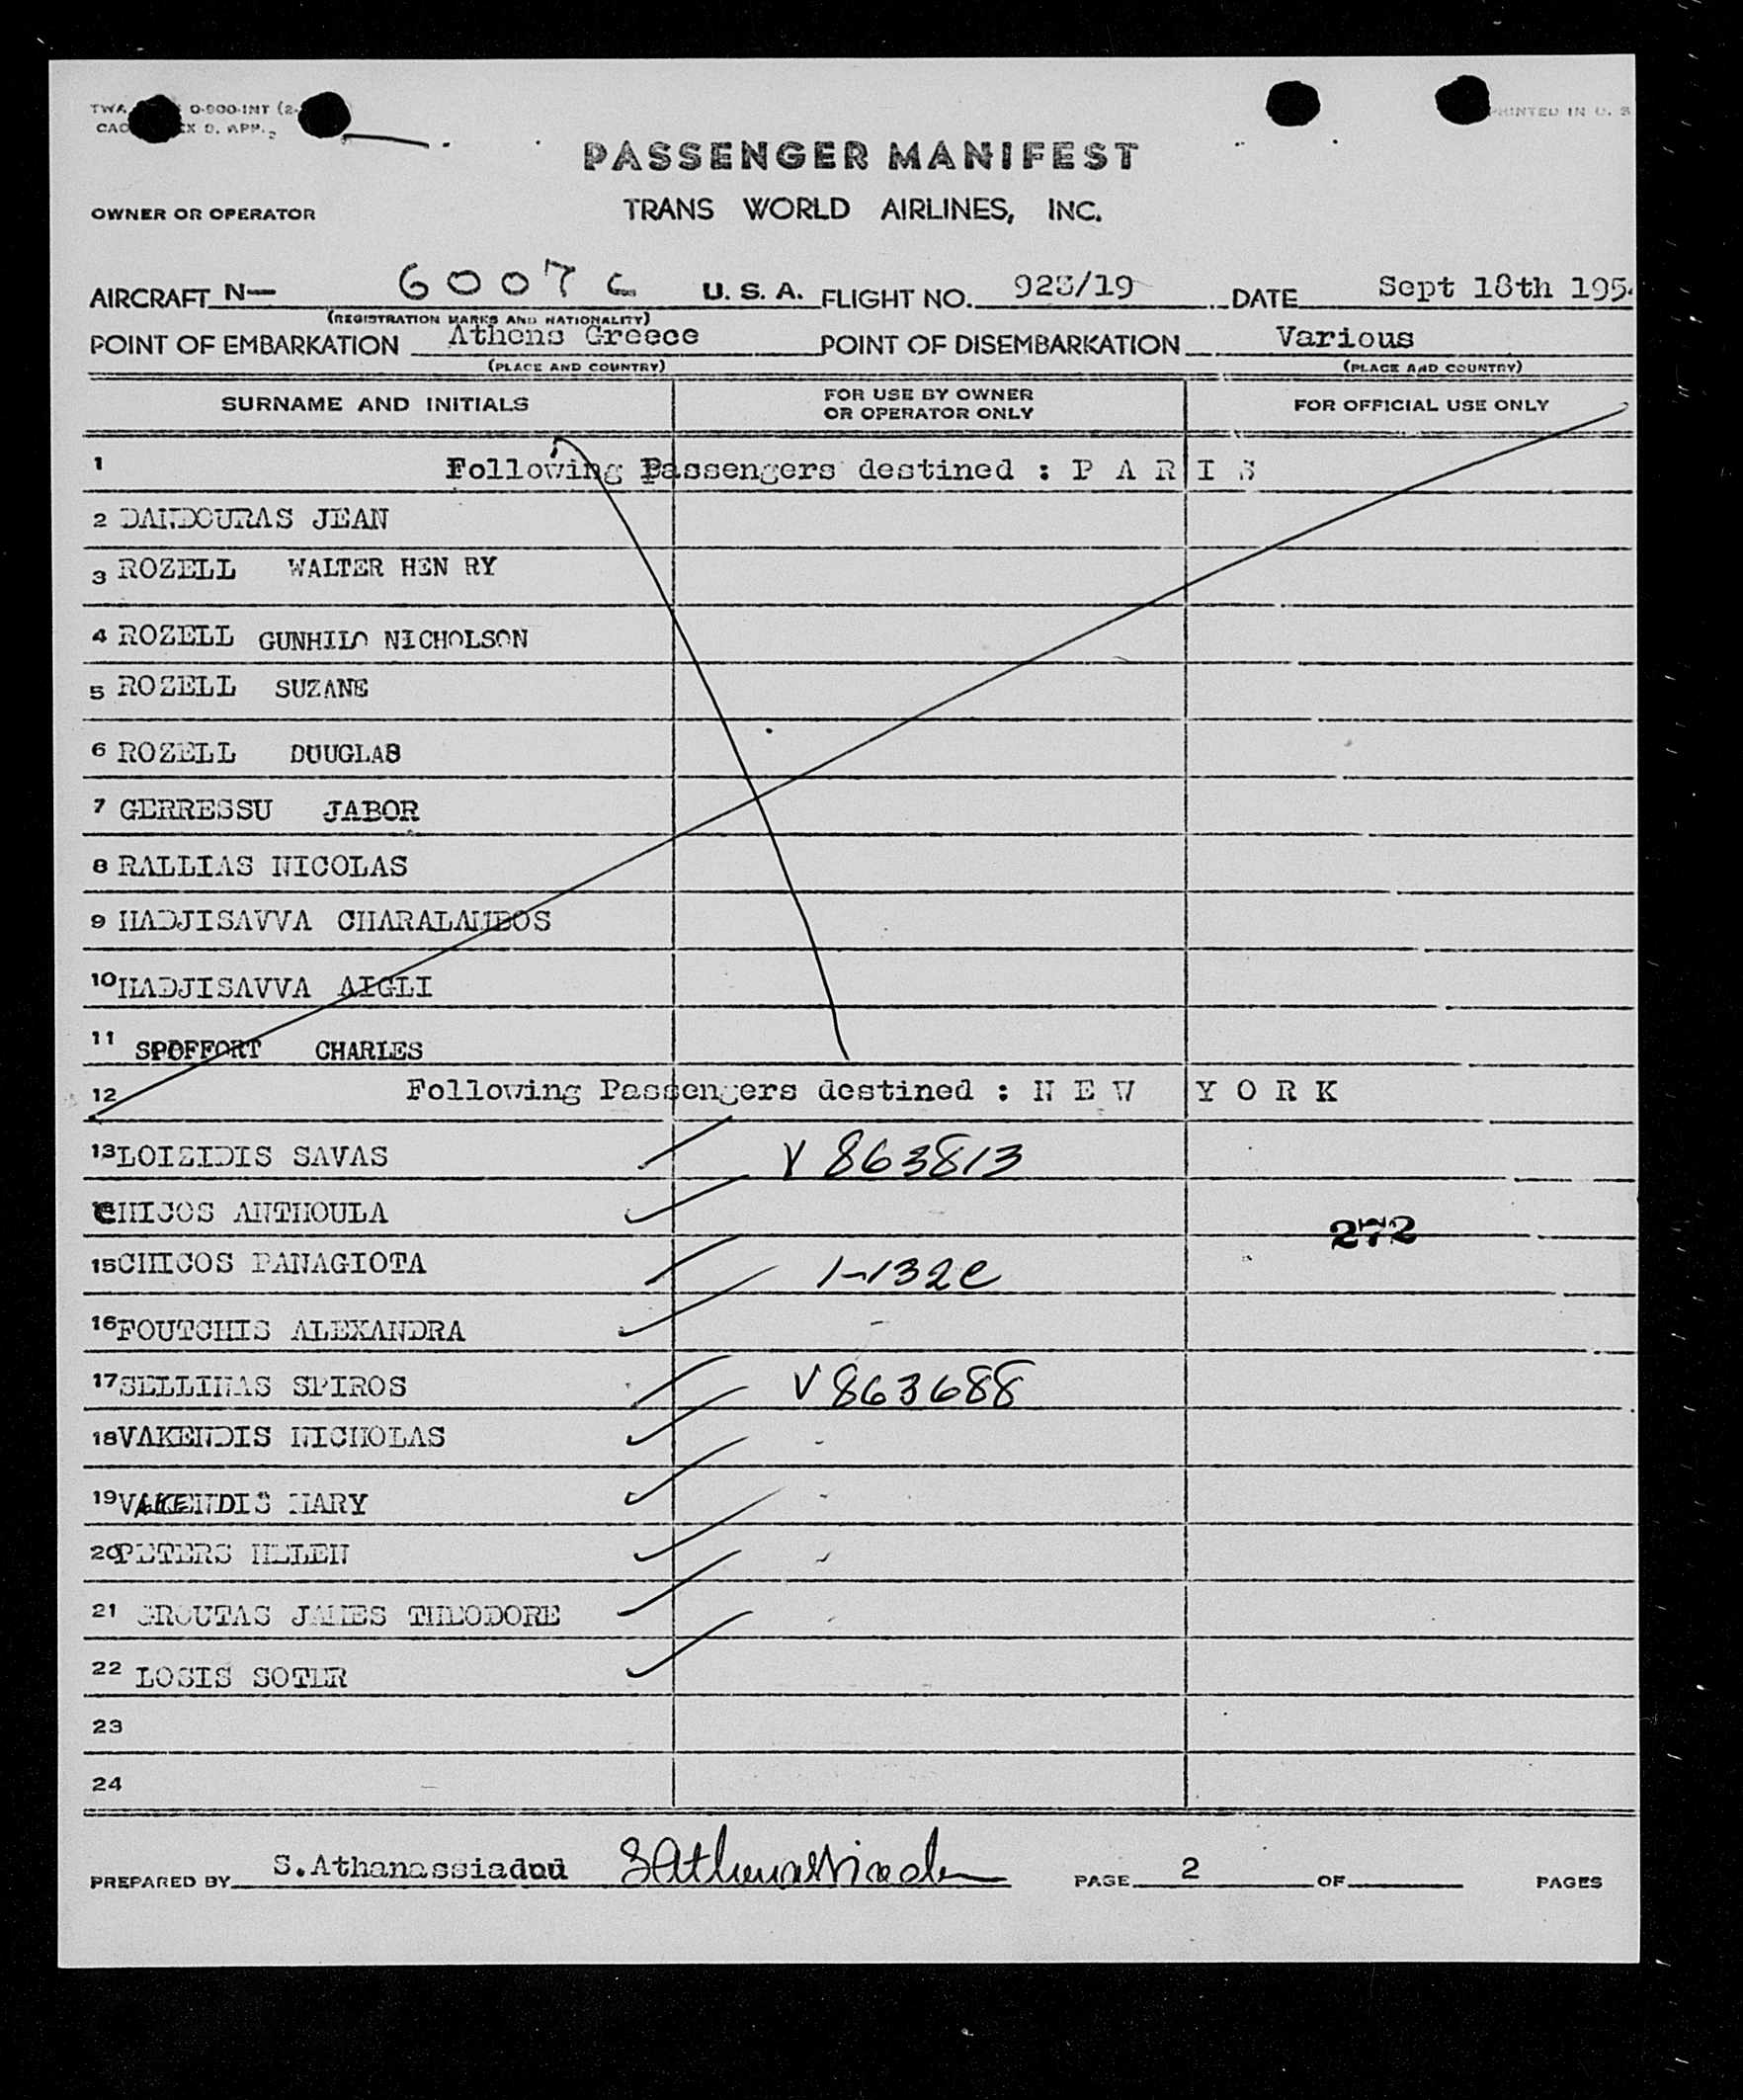 TWA O-900-INT (2-
CAO EX 9. APP.
PRINTED IN U. S
PASSENGER MANIFEST
OWNER OR OPERATOR TRANS WORLD AIRLINES, INC.
AIRCRAFT N— 6007C U. S. A. FLIGHT NO. 923/19 DATE Sept 18th 195
(REGISTRATION MARKS AND NATIONALITY)
POINT OF EMBARKATION Athens Greece POINT OF DISEMBARKATION Various
(PLACE AND COUNTRY) (PLACE AND COUNTRY)
SURNAME AND INITIALS FOR USE BY OWNER OR OPERATOR ONLY FOR OFFICIAL USE ONLY
1 Following Passengers destined : P A R I S
2 DANDOURAS JEAN
3 ROZELL WALTER HEN RY
4 ROZELL GUNHILD NICHOLSON
5 ROZELL SUZANE
6 ROZELL DOUGLAS
7 GERRESSU JABOR
8 RALLIAS NICOLAS
9 HADJISAVVA CHARALAMBOS
10 HADJISAVVA AIGLI
11 SPOFFORT CHARLES
12 Following Passengers destined : N E W Y O R K
13 LOIZIDIS SAVAS V 863813
CHICOS ANTHOULA
272
15 CHICOS PANAGIOTA 1-132C
16 FOUTCHIS ALEXANDRA
17 SELLINAS SPIROS V 863688
18 VAKENDIS NICHOLAS
19 VAKENDIS MARY
20 PETERS HELEN
21 GROUTAS JAMES THEODORE
22 LOSIS SOTER
23
24
PREPARED BY S.Athanassiadou SAthanassiadou PAGE 2 OF PAGES